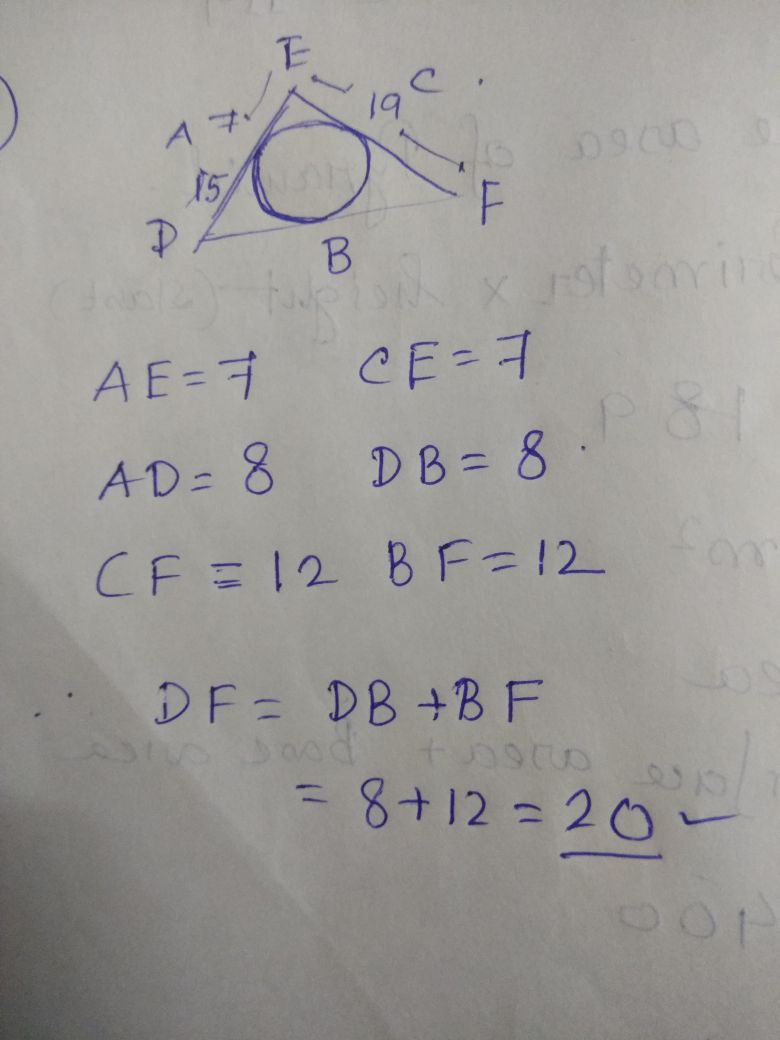 E
C
A 7 19
15
D F
B
AE = 7 CE = 7
AD = 8 DB = 8
CF = 12 BF = 12
DF = DB + BF
= 8 + 12 = 20